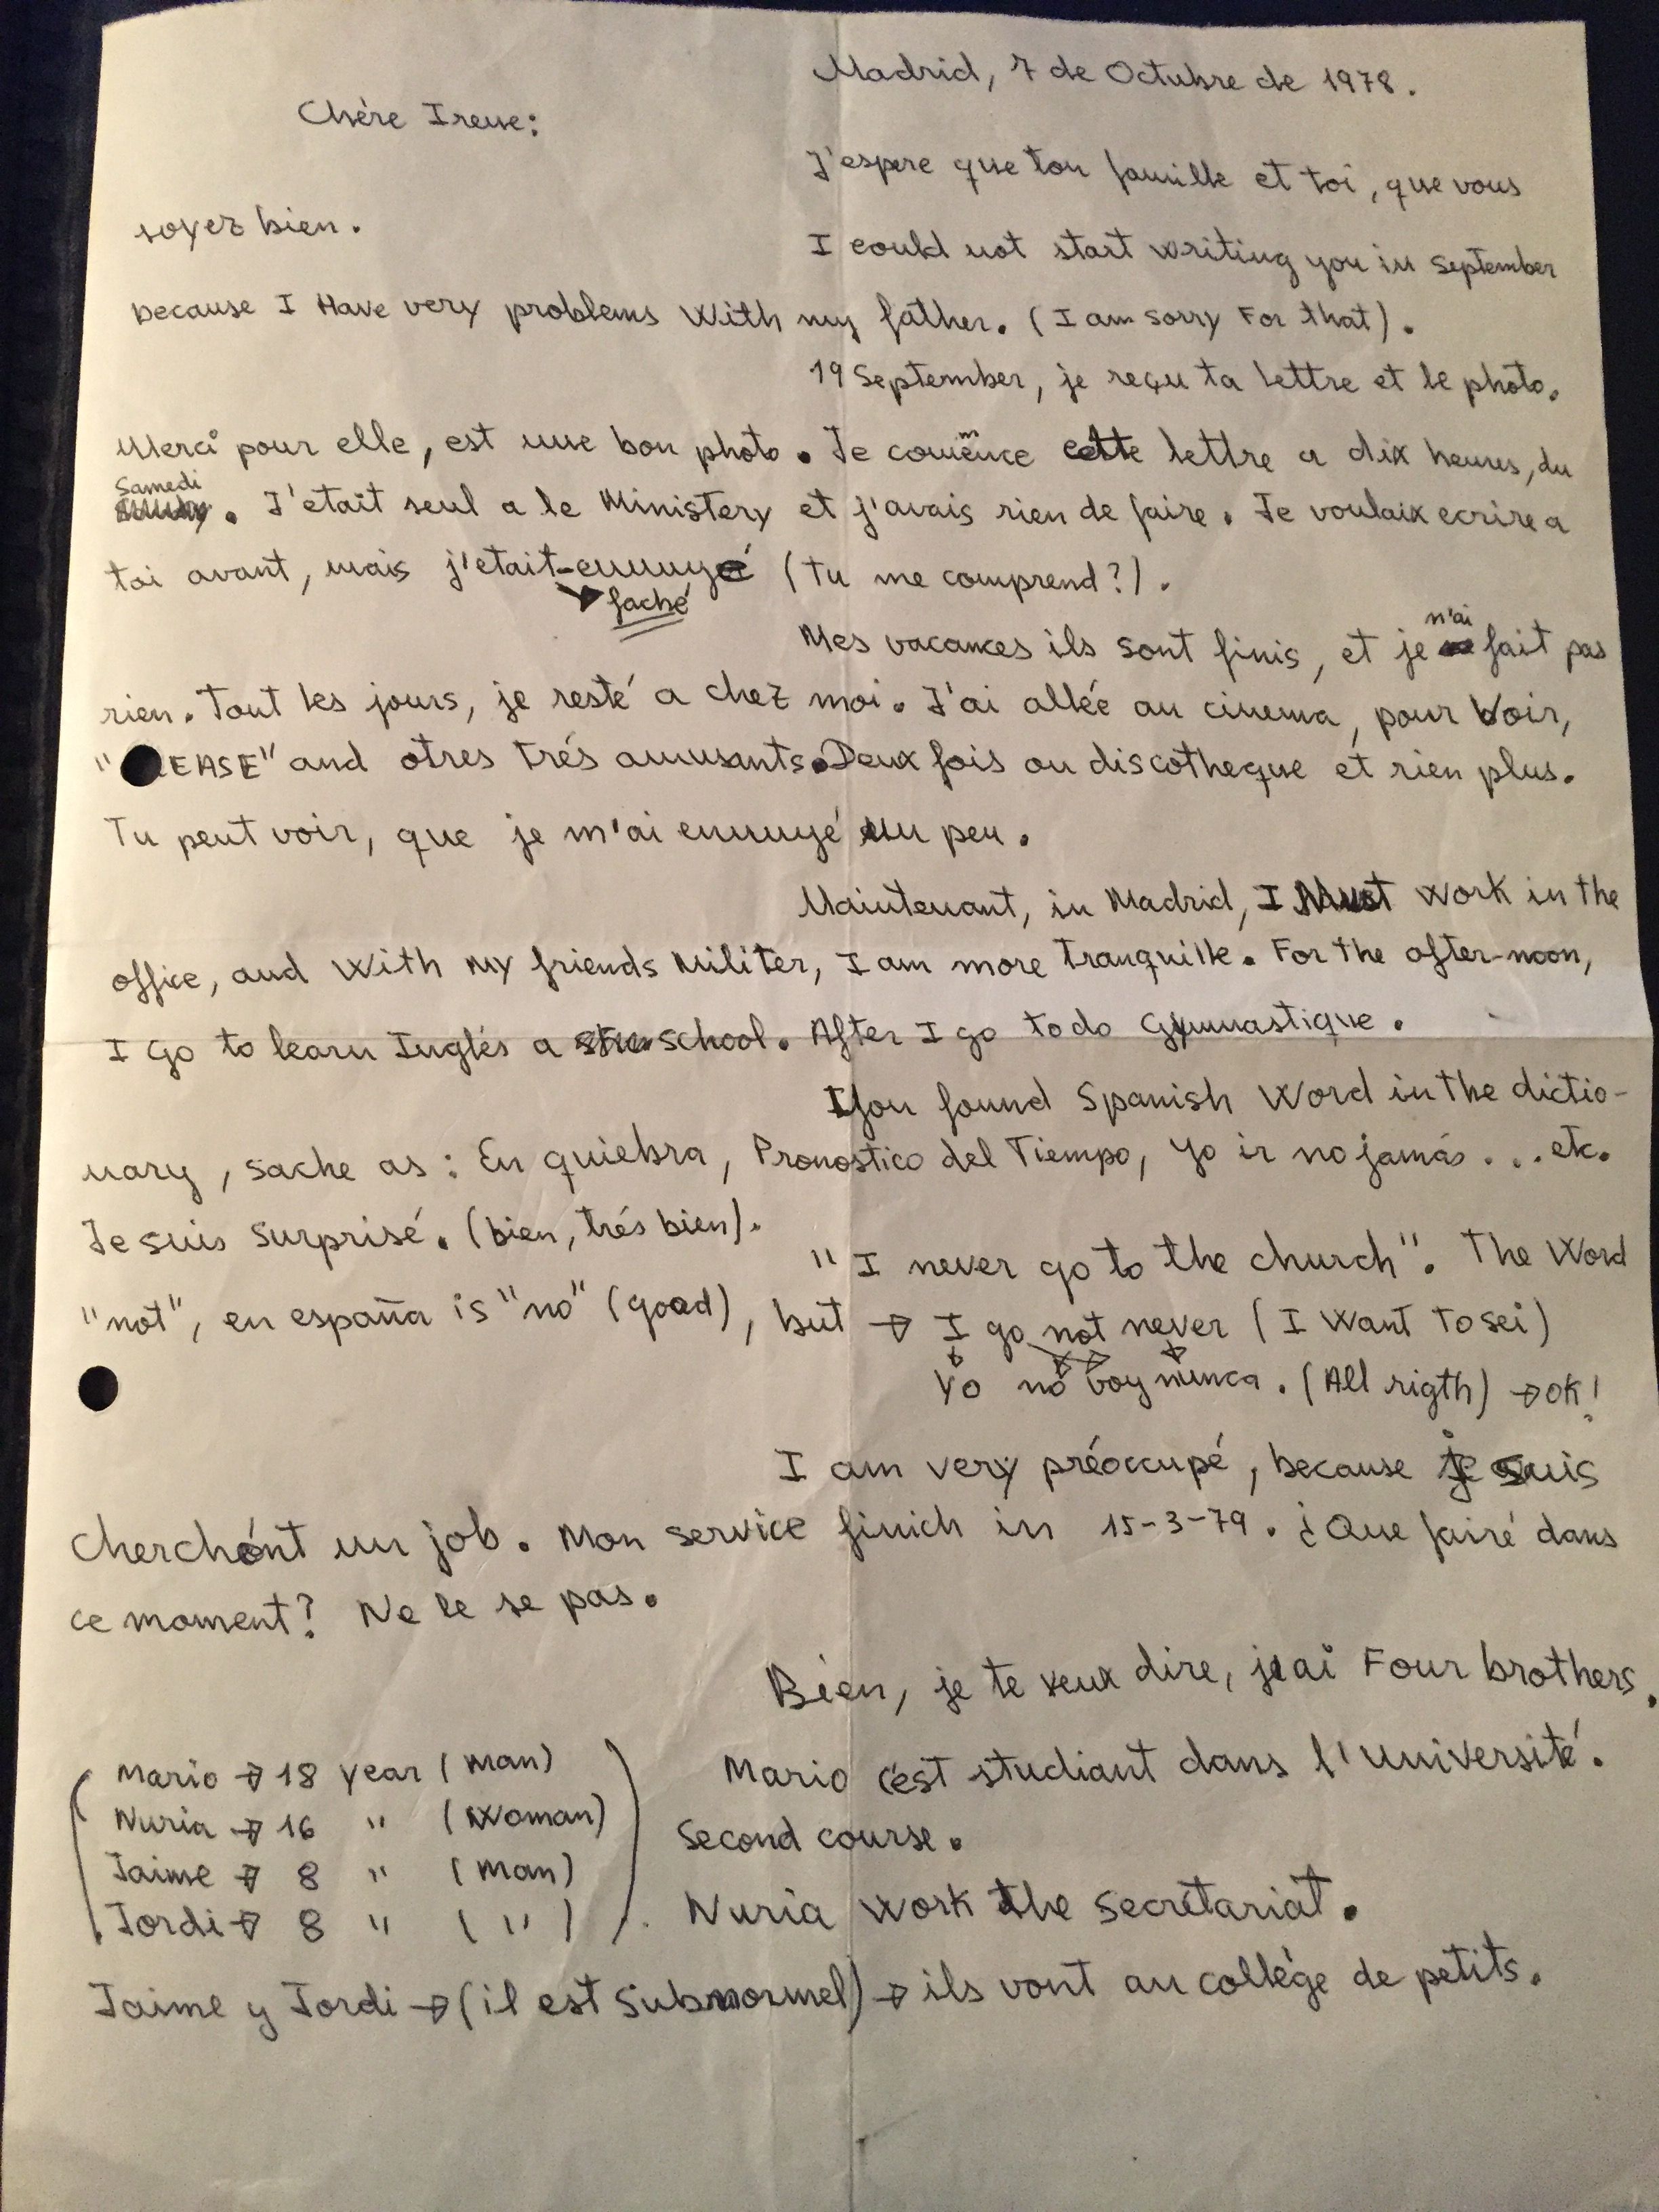 Madrid, 7 de Octubre de 1978.
Chère Irene:
J'espere que ton famille et toi, que vous
soyez bien.
I could not start writing you in September
because I Have very problems With my father. (I am sorry For that).
19 September, je reçu ta lettre et le photo.
Merci pour elle, est une bon photo. Je commence cette lettre a dix heures, du
Samedi. J'etait seul a le Ministery et j'avais rien de faire. Je voulaix ecrire a
toi avant, mais j'etait-ennuyé (tu me comprend?).
faché
Mes vacances ils sont finis, et je n'ai fait pas
rien. Tout les jours, je resté a chez moi. J'ai allée au cinema, pour Voir,
"EASE" and otres trés amusants. Deux fois au discotheque et rien plus.
Tu peut voir, que je m'ai ennuyé un peu.
Maintenant, in Madrid, I Must Work in the
office, and With My friends Militer, I am more tranquille. For the after-noon,
I Go to learn Inglés a school. After I go to do Gymnastique.
If you found Spanish Word in the dictio-
nary, sache as: En quiebra, Pronostico del Tiempo, Yo ir no jamás ... etc.
Je suis surprisé. (bien, trés bien).
"I never go to the church". The Word
"not", en españa is "no" (good), but → I go not never (I Want To sei)
Yo no voy nunca. (All rigth) → OK!
I am very préoccupé, because je suis
cherchónt un job. Mon service finich in 15-3-79. ¿Que fairé dans
ce moment? Ne le se pas.
Bién, je te veux dire, j'ai Four brothers.
Mario → 18 year (Man)
Nuria → 16 " (Woman)
Jaime → 8 " (Man)
Jordi → 8 " ( " )
Mario c'est studiant dans l'Université.
Second course.
Nuria Work the secrétariat.
Jaime y Jordi → (il est subnormel) → ils vont au collège de petits.